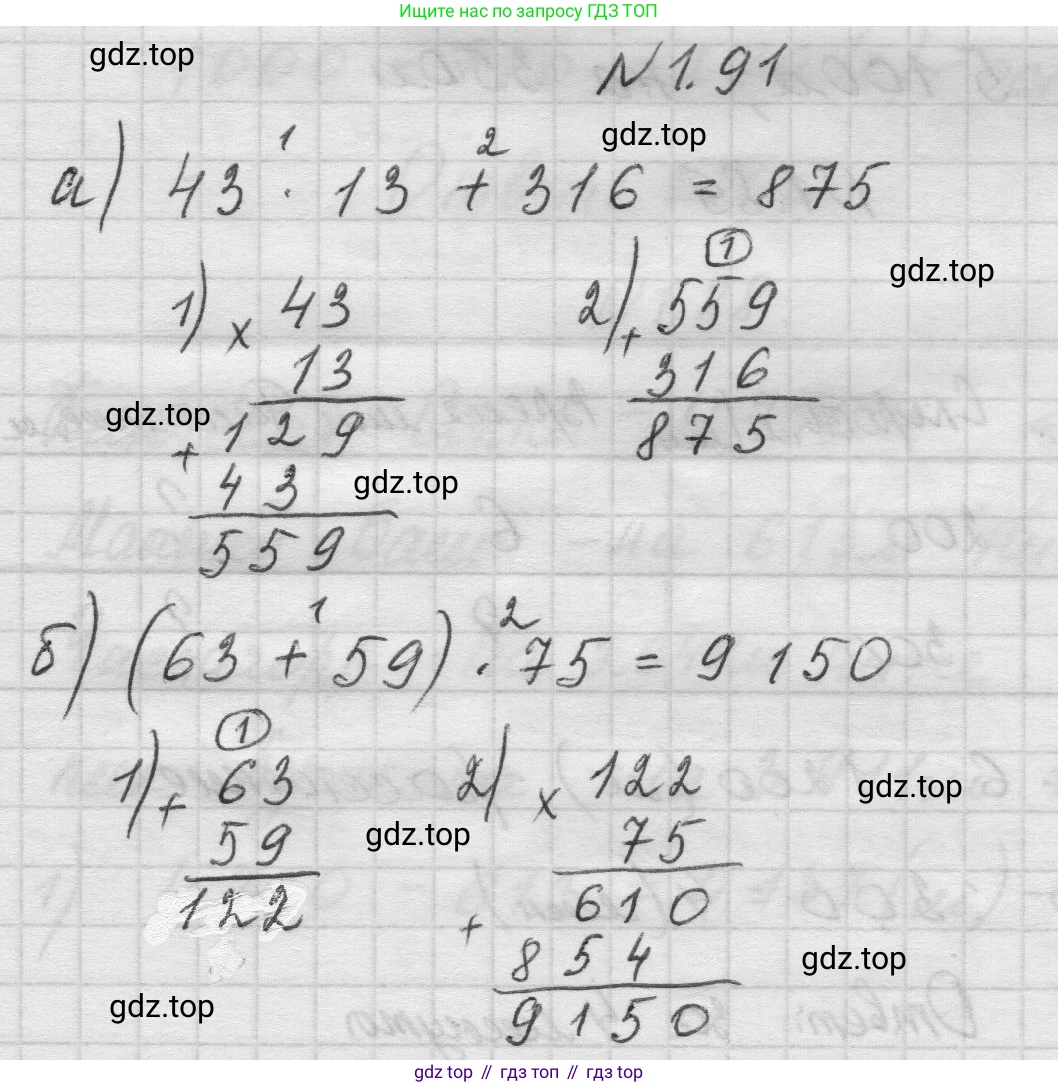 Ищите нас по запросу ГДЗ ТОП
gdz.top
N 1.91
gdz.top
1 2
а) 43 · 13 + 316 = 875
gdz.top
1
1) × 43
13
129
+ 43
559
2) + 559
316
875
gdz.top
gdz.top
1 2
б) (63 + 59) · 75 = 9150
1
1) + 63
59
122
2) × 122
75
610
+ 854
9150
gdz.top
gdz.top
gdz.top
gdz.top
gdz top // гдз топ // gdz top